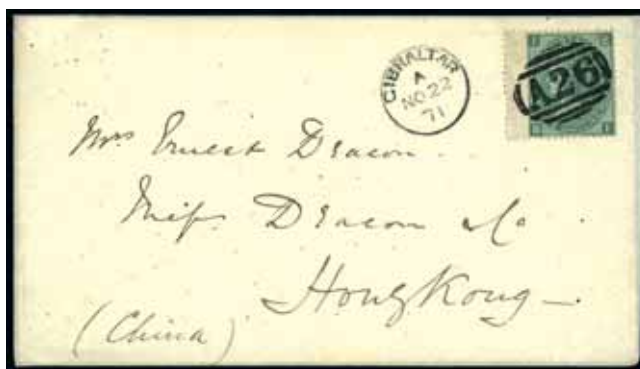 GIBRALTAR
A
NO 22
71
A26
Mrs Ernest Deacon.
Deacon & Co.
Hong Kong
(China)